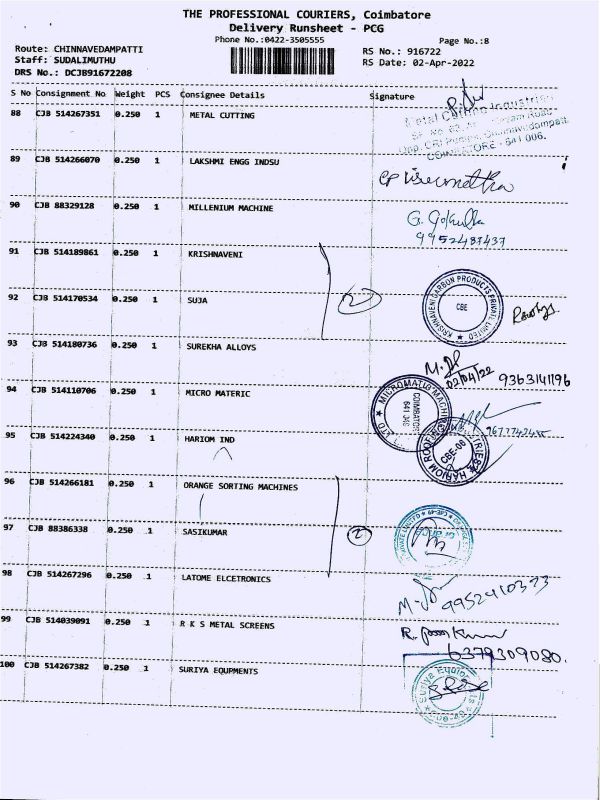 THE PROFESSIONAL COURIERS, Coimbatore
Delivery Runsheet - PCG
Phone No.:0422-3505555
Page No.:8
Route: CHINNAVEDAMPATTI
RS No.: 916722
Staff: SUDALIMUTHU
RS Date: 02-Apr-2022
DRS No.: DCJB91672208
S No Consignment No Weight PCS Consignee Details Signature
88 CJB 514267351 0.250 1 METAL CUTTING
Metal Cutting Industries
COIMBATORE - 641 006.
89 CJB 514266070 0.250 1 LAKSHMI ENGG INDSU
90 CJB 88329128 0.250 1 MILLENIUM MACHINE
G. Gokulla
9952487437
91 CJB 514189861 0.250 1 KRISHNAVENI
92 CJB 514170534 0.250 1 SUJA
2
KRISHNAVENI CARBON PRODUCTS PRIVATE LIMITED
CBE
93 CJB 514180736 0.250 1 SUREKHA ALLOYS
02/04/22
9363141196
94 CJB 514110706 0.250 1 MICRO MATERIC
MICROMATIC MACHINE LTD
COIMBATORE
95 CJB 514224340 0.250 1 HARIOM IND
HARIOM ROOFING INDUSTRIES
CBE-06
96 CJB 514266181 0.250 1 ORANGE SORTING MACHINES
97 CJB 88386338 0.250 1 SASIKUMAR
2
98 CJB 514267296 0.250 1 LATOME ELCETRONICS
9952410373
99 CJB 514039091 0.250 1 R K S METAL SCREENS
6379309080.
100 CJB 514267382 0.250 1 SURIYA EQUPMENTS